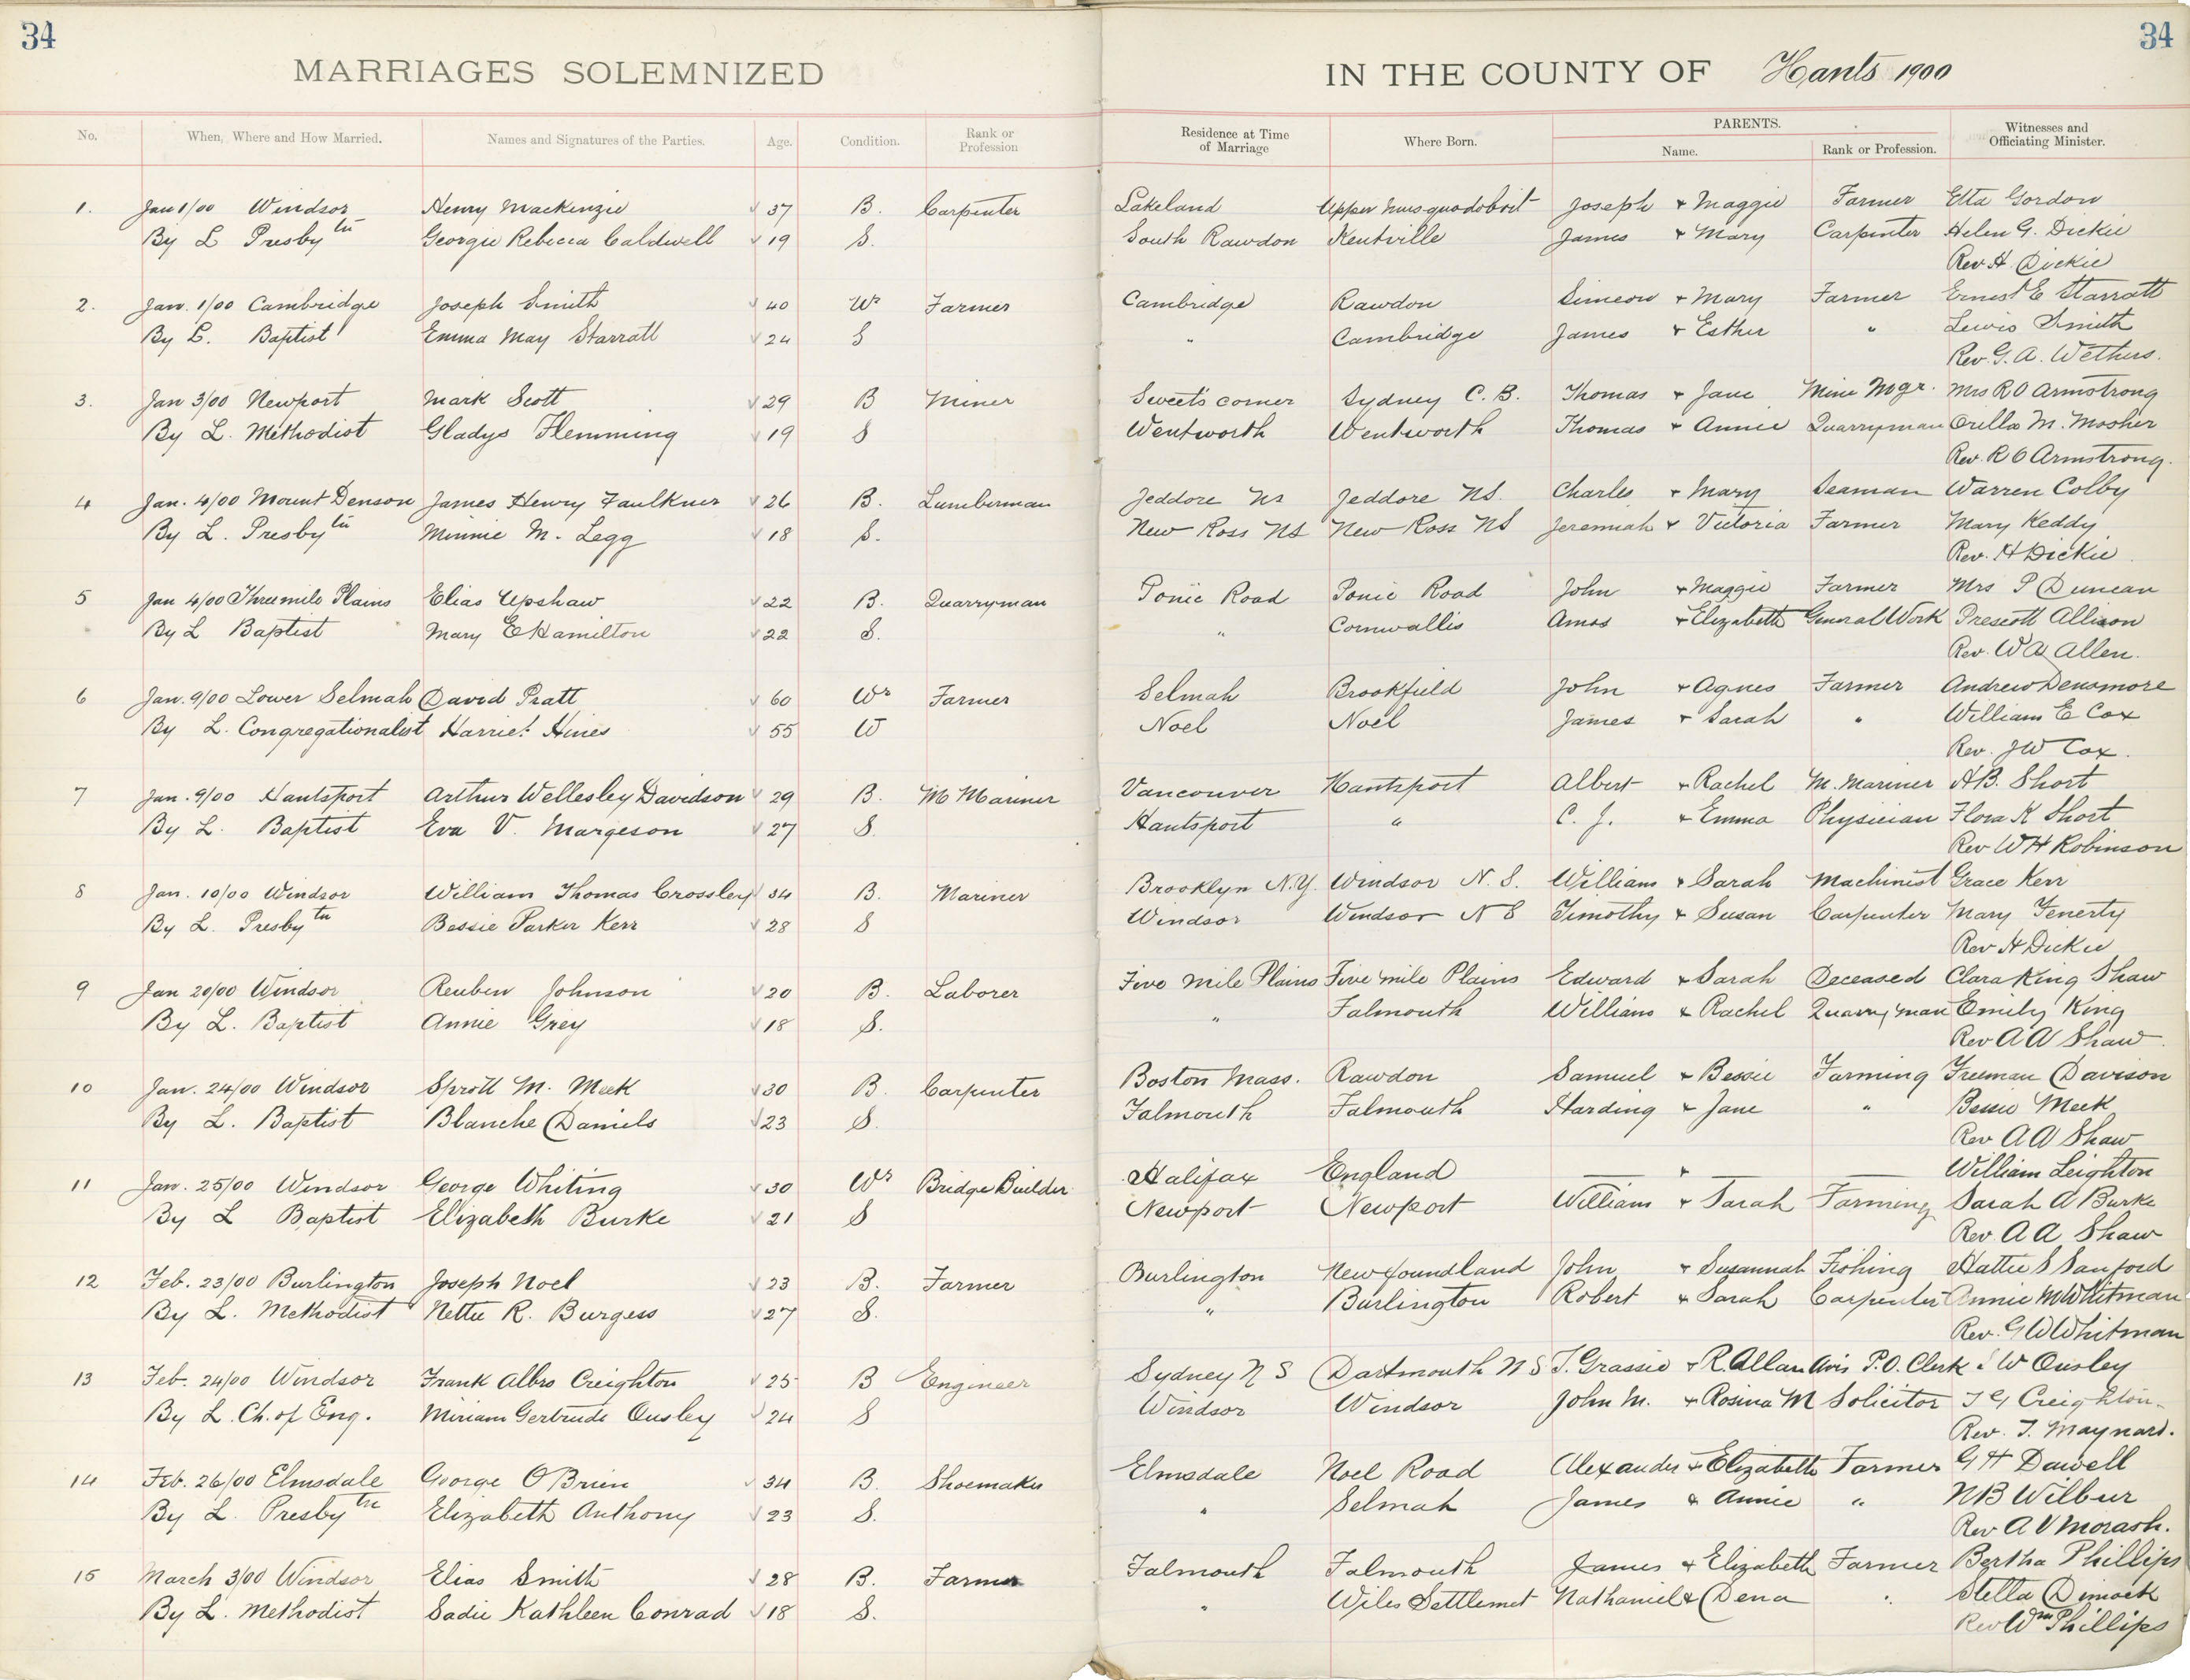 34 34
MARRIAGES SOLEMNIZED IN THE COUNTY OF Hants 1900
No. When, Where and How Married. Names and Signatures of the Parties. Age. Condition. Rank or Profession Residence at Time of Marriage Where Born. PARENTS. Name. Rank or Profession. Witnesses and Officiating Minister.
1. Jan 1/00 Windsor Henry MacKenzie 37 B. Carpenter Lakeland Upper Musquodoboit Joseph + Maggie Farmer Etta Gordon
By L Presbytn Georgie Rebecca Caldwell 19 S. South Rawdon Kentville James + Mary Carpenter Helen G. Dickie
Rev H Dickie
2. Jan. 1/00 Cambridge Joseph Smith 40 Wr Farmer Cambridge Rawdon Simeon + Mary Farmer Ernest E Starratt
By L. Baptist Emma May Starratt 24 S " Cambridge James + Esther " Lewis Smith
Rev. G. A. Wethers.
3. Jan 3/00 Newport Mark Scott 29 B Miner Sweet's corner Sydney C. B. Thomas + Jane Mine Mgr. Mrs R O Armstrong
By L. Methodist Gladys Flemming 19 S Wentworth Wentworth Thomas + Annie Quarryman Orilla M. Mosher
Rev. R O Armstrong.
4 Jan. 4/00 Mount Denson James Henry Faulkner 26 B. Lumberman Jeddore NS Jeddore NS. Charles + Mary Seaman Warren Colby
By L. Presbytn Minnie M. Legg 18 S. New Ross NS New Ross NS Jeremiah + Victoria Farmer Mary Keddy
Rev. H Dickie
5 Jan 4/00 Three mile Plains Elias Upshaw 22 B. Quarryman Ponic Road Ponic Road John + Maggie Farmer Mrs P Duncan
By L Baptist Mary E Hamilton 22 S. " Cornwallis Amos + Elizabeth General Work Prescott Allison
Rev. W A Allen.
6 Jan. 9/00 Lower Selmah David Pratt 60 Wr Farmer Selmah Brookfield John + Agnes Farmer Andrew Densmore
By L. Congregationalist Harriet Hines 55 W Noel Noel James + Sarah " William E Cox
Rev. J W Cox.
7 Jan. 9/00 Hantsport Arthur Wellesley Davidson 29 B. M Mariner Vancouver Hantsport Albert + Rachel M. Mariner H B. Short
By L. Baptist Eva V. Margeson 27 S. Hantsport " C. J. + Emma Physician Flora K Short
Rev W H Robinson
8 Jan. 10/00 Windsor William Thomas Crossley 34 B. Mariner Brooklyn N.Y. Windsor N. S. William + Sarah Machinist Grace Kerr
By L. Presbytn Bessie Parker Kerr 28 S Windsor Windsor N S Timothy + Susan Carpenter Mary Fenerty
Rev H Dickie
9 Jan 20/00 Windsor Reuben Johnson 20 B. Laborer Five Mile Plains Five mile Plains Edward + Sarah Deceased Clara King Shaw
By L. Baptist Annie Grey 18 S. " Falmouth William + Rachel Quarryman Emily King
Rev A A Shaw.
10 Jan. 24/00 Windsor Sprott M. Meek 30 B. Carpenter Boston Mass. Rawdon Samuel + Bessie Farming Freeman Davison
By L. Baptist Blanche Daniels 23 S. Falmouth Falmouth Harding + Jane " Bessie Meek
Rev A A Shaw
11 Jan. 25/00 Windsor George Whiting 30 Wr Bridge Builder Halifax England — + — William Leighton
By L Baptist Elizabeth Burke 21 S Newport Newport William + Sarah Farming Sarah A Burke
Rev. A A Shaw
12 Feb. 23/00 Burlington Joseph Noel 23 B. Farmer Burlington Newfoundland John + Susannah Fishing Hattie S Sanford
By L. Methodist Nettie R. Burgess 27 S. " Burlington Robert + Sarah Carpenter Annie M Whitman
Rev. G W Whitman
13 Feb. 24/00 Windsor Frank Albro Creighton 25 B Engineer Sydney N S Dartmouth N S T. Grassie + R. Allan Avis P.O. Clerk W Ousley
By L. Ch. of Eng. Miriam Gertrude Ousley 24 S Windsor Windsor John M. + Rosina M Solicitor T G Creighton
Rev. T. Maynard.
14 Feb. 26/00 Elmsdale George O'Brien 34 B. Shoemaker Elmsdale Noel Road Alexander + Elizabeth Farmer G H Dawell
By L. Presbytn Elizabeth Anthony 23 S. " Selmah James + Annie " N B Wilbur
Rev A V Morash.
15 March 3/00 Windsor Elias Smith 28 B. Farmer Falmouth Falmouth James + Elizabeth Farmer Bertha Phillips
By L. Methodist Sadie Kathleen Conrad 18 S. " Wiles Settlemet Nathaniel + Dena " Stella Dimock
Rev Wm Phillips